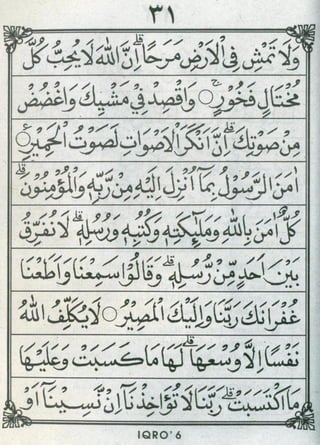 ٣١
وَلَا تَمْشِ فِى الْاَرْضِ مَرَحًا ۗ اِنَّ اللّٰهَ لَا يُحِبُّ كُلَّ
مُخْتَالٍ فَخُوْرٍ ۚ ۝ وَاقْصِدْ فِيْ مَشْيِكَ وَاغْضُضْ
مِنْ صَوْتِكَ ۗ اِنَّ اَنْكَرَ الْاَصْوَاتِ لَصَوْتُ الْحَمِيْرِ ۝
اٰمَنَ الرَّسُوْلُ بِمَآ اُنْزِلَ اِلَيْهِ مِنْ رَّبِّهٖ وَالْمُؤْمِنُوْنَ ۗ
كُلٌّ اٰمَنَ بِاللّٰهِ وَمَلٰٓئِكَتِهٖ وَكُتُبِهٖ وَرُسُلِهٖ ۗ لَا نُفَرِّقُ
بَيْنَ اَحَدٍ مِّنْ رُّسُلِهٖ ۗ وَقَالُوْا سَمِعْنَا وَاَطَعْنَا
غُفْرَانَكَ رَبَّنَا وَاِلَيْكَ الْمَصِيْرُ ۝ لَا يُكَلِّفُ اللّٰهُ
نَفْسًا اِلَّا وُسْعَهَا ۗ لَهَا مَا كَسَبَتْ وَعَلَيْهَا
مَا اكْتَسَبَتْ ۗ رَبَّنَا لَا تُؤَاخِذْنَآ اِنْ نَّسِيْنَآ اَوْ
IQRO' 6